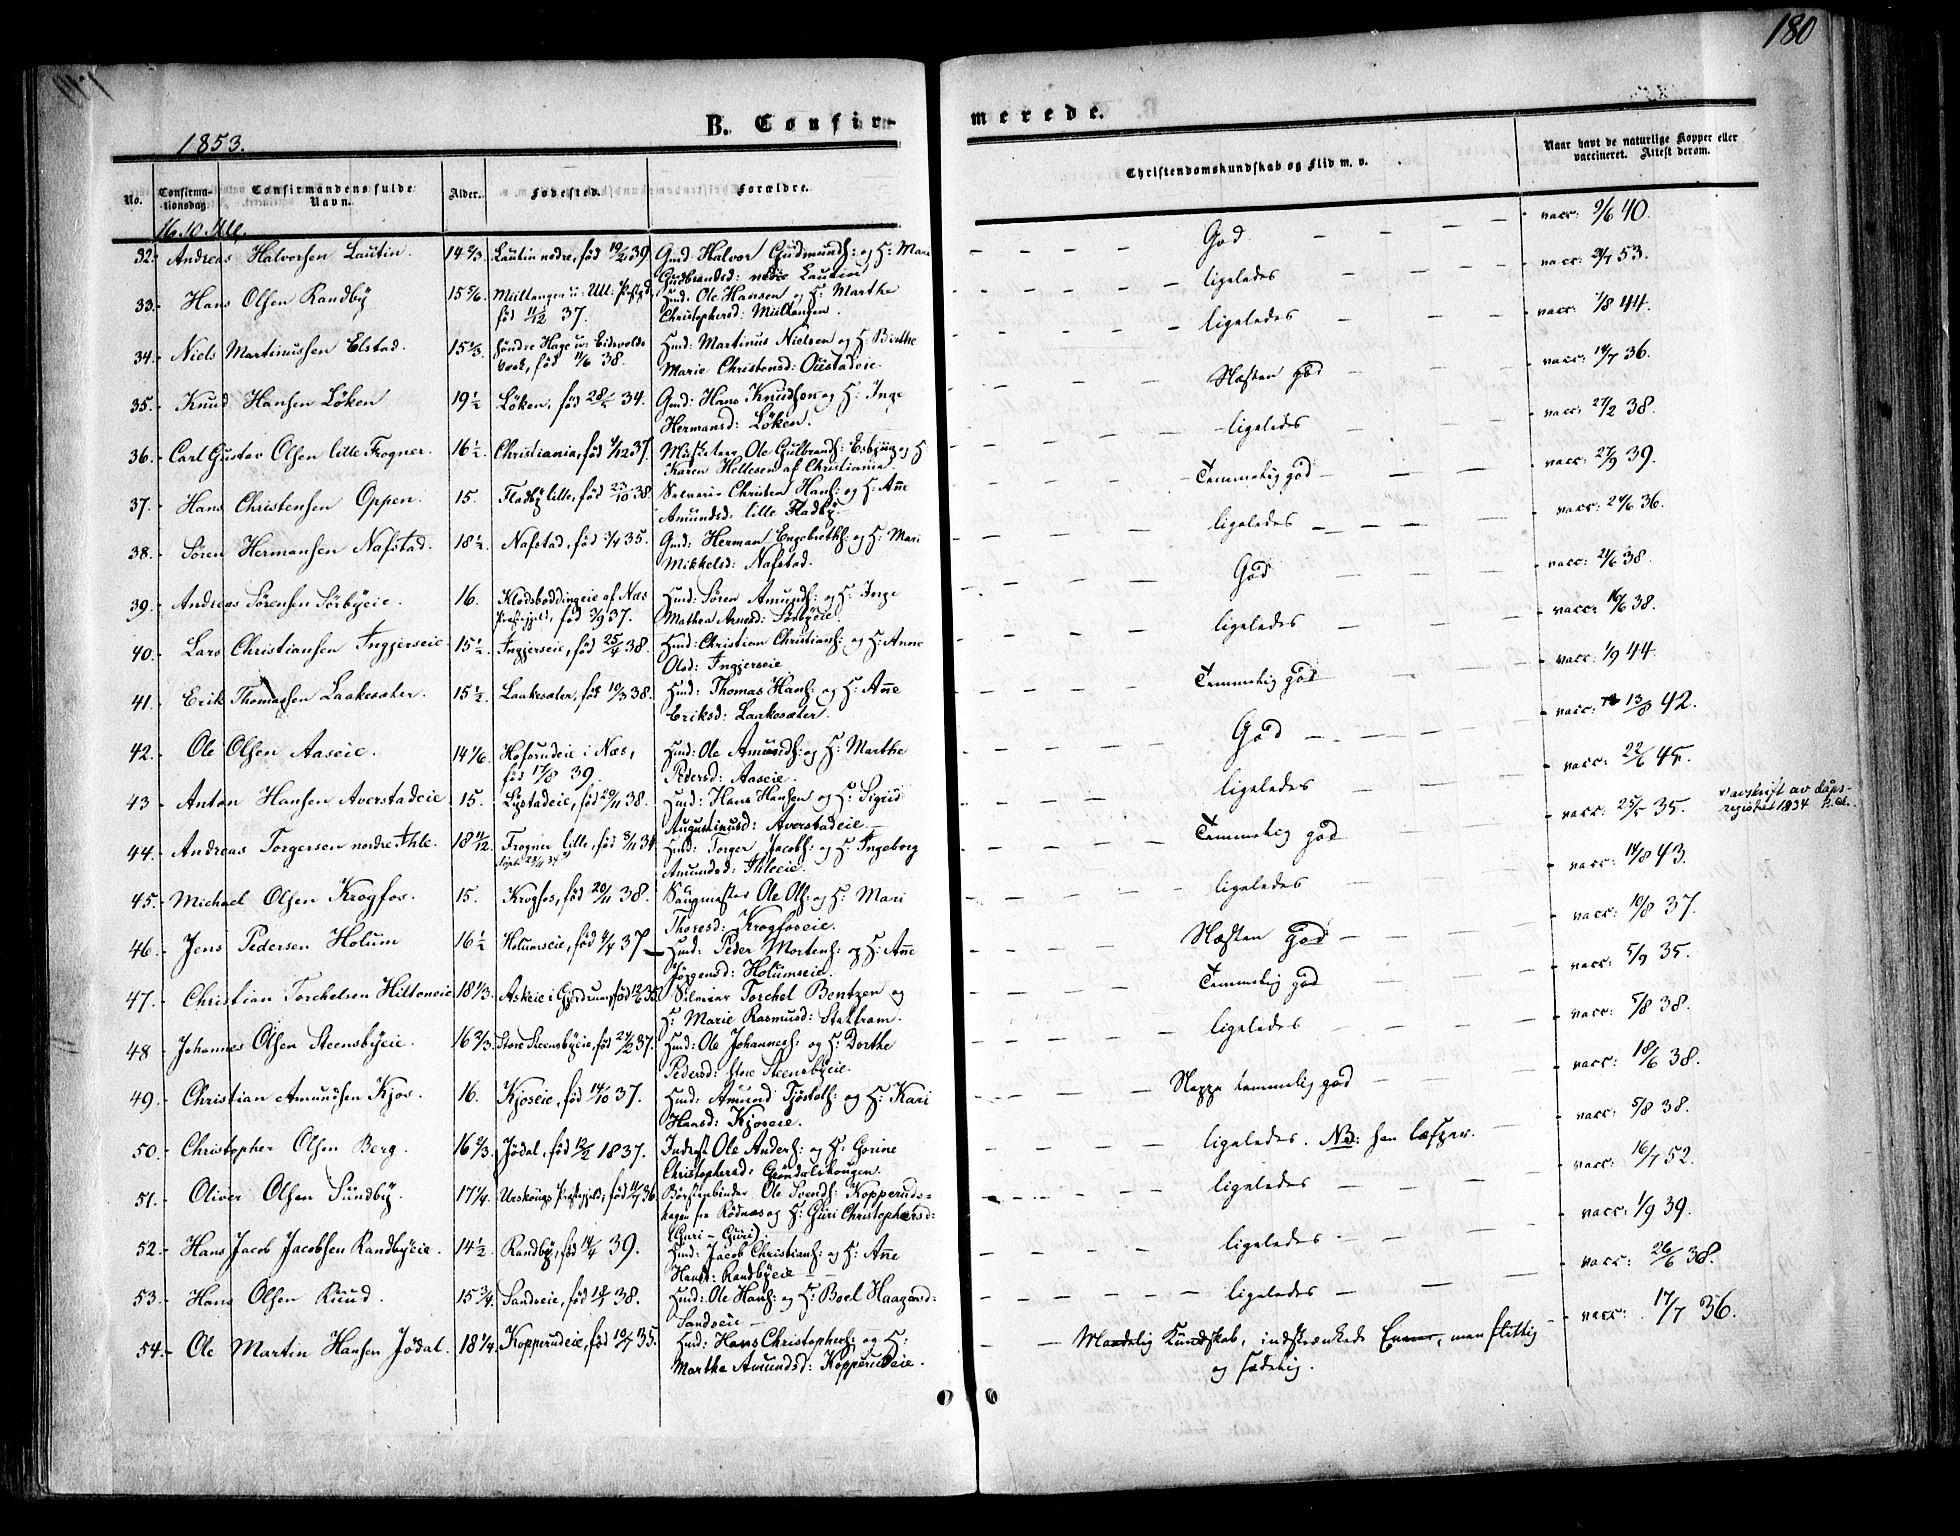 180
B. Confirmerede.
1853.
No.
Confirmationsdag.
Confirmandens fulde Navn.
Alder.
Fødested.
Forældre.
Christendomskundskab og Flid m. v.
Naar havt de naturlige Kopper eller vaccineret. Attest derom.
16. 10. Ull.
32. Andreas Halvorsen Lautin. 14 2/3 Lautin nedre, fød 19/2 39 Gmd: Halvor Gudmunds: og H: Mari — God — vacc: 9/6 40.
Gudbrandsd: nedre Lautin
33. Hans Olsen Randby 15 5/6 Ull: Prstgd. Huusd: Ole Hansen og H: Marthe — ligeledes — vacc: 53.
fød 11/12 37. Christophersd:
34. Niels Martinussen Elstad. 15 1/3 søndre Hage u: Eidsvolds Huusd: Martinus Nielsen og H: Birthe — ligeledes — vacc: 1/8 44.
Værk, fød 11/6 38. Marie Christensd: Oustadeie.
35. Knud Hansen Löken 19 1/2 Löken, fød 34. Gmd: Hans Knudson og H: Inge — Næsten god — vacc: 14/7 36.
Hermansd: Löken.
36. Carl Gustav Olsen lille Frogner. 16 1/2 Christiania, fød 37. Musketeer Ole Gulbrands: og H — ligeledes — vacc: 27/2 38.
Karen Hellesen af Christiania
37. Hans Christensen Oppen. 15. Fladby lille, fød 23/10 38. Christen Hans: og H: Anne — Temmelig god — vacc: 27/9 39.
Amundsd: lille Fladby.
38. Sören Hermansen Nafstad. 18 1/2 Nafstad, fød 3/4 35. Gmd: Herman Engebreths: og H: Mari — ligeledes — vacc: 24/6 36.
Mikkelsd: Nafstad.
39. Andreas Sörensen Sörbyeie. 16. Klodsboddingeie af Næs Huusd: Sören Amunds: og H: Inge — God — vacc: 24/6 38.
Præstgjeld, fød 3/9 37. Mathea Arnesd: Sörbyeie.
40. Lars Christiansen Ingjerseie 15 1/2 Ingjerseie, fød 25/4 38. Huusd: Christian Christians: og H: Anne — ligeledes — vacc: 16/6 38.
Olsd: Ingjerseie
41. Erik Thomassen Laakesæter. 15 1/2 Laakesæter, fød 10/3 38. Huusd: Thomas Hans: og H: Anne — Temmelig god — vacc: 1/9 44.
Eriksd: Laakesæter.
42. Ole Olsen Aaseie. 14 1/6 Hoforudeie i Næs, Huusd: Ole Amunds: og H: Marthe — God — vacc: 13/8 42.
fød 17/8 39. Pedersd: Aaseie.
43 Anton Hansen Averstadeie 15. Lystadeie, fød 20/11 38. Huusd: Hans Hansen og H: Sigrid — ligeledes — vacc: 22/6 45.
Augustinusd: Averstadeie.
44. Andreas Torgersen nordre Ihle. 18 11/12 Frogner lille, fød 8/11 34 Huusd: Torger Jacobs: og H: Ingeborg — Temmelig god — vacc: 25/5 35. avskrift av dåps-
registret 1834
døpt 23/11 34 Amundsd: Ihleeie.
45. Michael Olsen Krogfos. 15. Krogfos, fød 20/11 38. Saugmester Ole Ols: og H: Mari — ligeledes — vacc: 14/8 43.
Thoresd: Krogfoseie.
46. Jens Pedersen Holum 16 1/2 Holumseie, fød 4/4 37 Huusd: Peder Mortens: og H: Anne — Næsten god — vacc: 10/8 37.
Jörgensd: Holumseie.
47. Christian Torchelsen Hiltoneie 18 1/3 Askeie i Gjerdrum, fød 12/6 35 Torchel Bentzen og — Temmelig god — vacc: 5/9 35.
H: Marie Rasmusd:
48 Johannes Olsen Steensbyeie. 16 2/3 Store Steensbyeie, fød 24/2 37. Huusd: Ole Johannes: og H: Dorthe — ligeledes — vacc: 5/8 38.
Pedersd: store Steensbyeie.
49. Christian Amundsen Kjos. 16. Kjoseie, fød 14/10 37. Huusd: Amund Tjöstols: og H: Kari — Neppe temmelig god — vacc: 18/6 38.
Hansd: Kjoseie.
50. Christopher Olsen Berg. 16 2/3 Jödal, fød 12/2 1837. Inderst Ole Anders: og H: Gorine — ligeledes. NB: — vacc: 5/8 38.
Christophersd: Gröndalskougen.
51. Oliver Olsen Sundby. 17 1/4 Urskougs Præstgjeld, fød 11/7 36 Börstenbinder Ole Svends: Kopperuds- — ligeledes — vacc: 16/7 52.
hagen fra Rödnæs og H: Guri Christophersd:
(Guri — Guri).
52. Hans Jacob Jacobsen Randbyeie. 14 1/2 Randby, fød 14/4 39. Huusd: Jacob Christians: og H: Anne — ligeledes — vacc: 1/9 39.
Hansd: Randbyeie
53. Hans Olsen Ruud. 15 3/4 Sandseie, fød 38. Huusd: Ole Hans: og H: Boel Haagensd: — ligeledes — vacc: 26/6 38.
Sandseie
54. Ole Martin Hansen Jödal. 18 1/4 Kopperudeie, fød 10/7 35. Huusd: Hans Christophers: og H: — Maadelig Kundskab, indskrænkede Evner, men flittig — vacc: 17/7 36.
Marthe Amundsd: Kopperudeie. og sædelig.